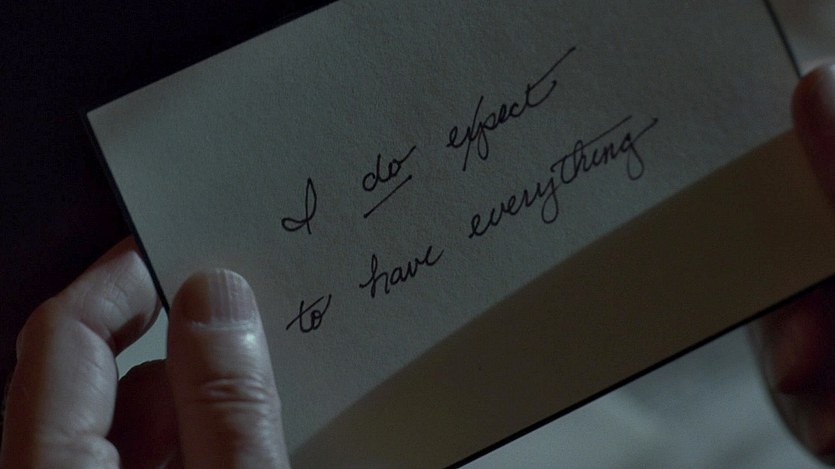 I do expect
to have everything